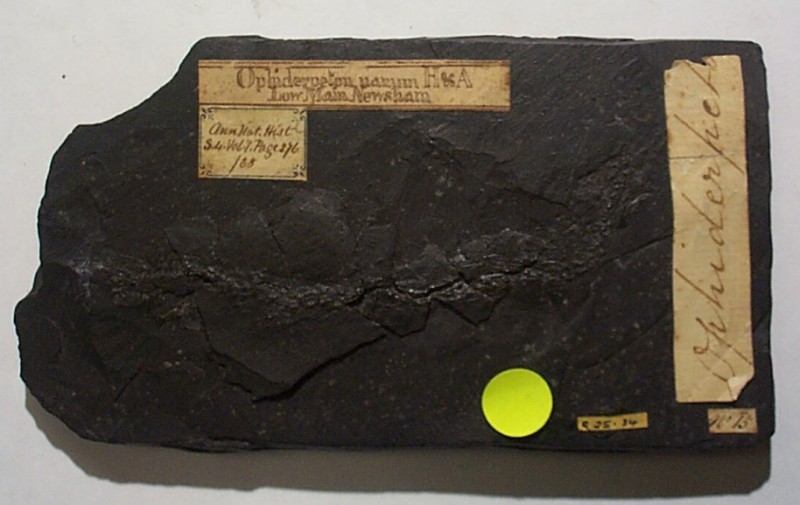 Ophiderpeton nanum H&A
Low Main Newsham
Ann Nat. Hist
S.4. Vol 1. Page 276
/68
Ophiderpet
G 25.34